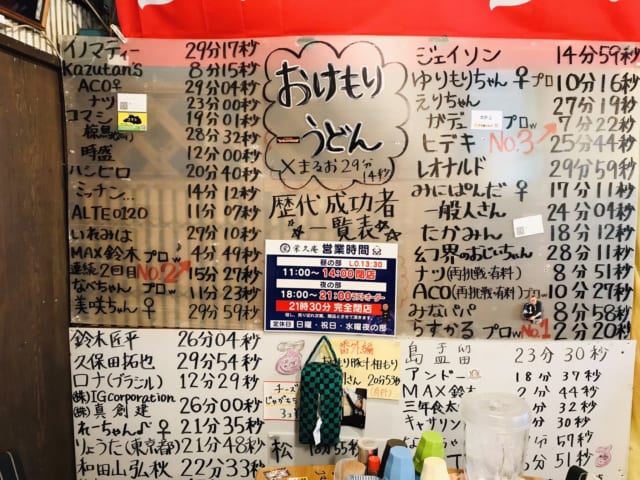 イノマティー 29分17秒
Kazutan's 8分15秒
ACO♀ 29分04秒
ナツ 23分00秒
コマシ 19分01秒
28分32秒
時盛 12分00秒
ハシヒロ 20分40秒
ミッチン… 14分12秒
ALTE0120 11分07秒
いれみは 29分10秒
MAX鈴木プロw 4分49秒
連続2回目 No.2 15分27秒
なべちゃんプロw 11分23秒
美咲ちゃん♀ 29分59秒
おけもり
うどん
×まるお29分
14秒
歴代成功者
一覧表
栄久庵 営業時間
昼の部 L.O.13:30
11:00〜14:00閉店
夜の部
18:00〜21:00ラストオーダー
21時30分 完全閉店
定休日 日曜・祝日・水曜夜の部
ジェイソン 14分59秒
ゆりもりちゃん♀プロ 10分16秒
えりちゃん 27分19秒
ガデュ プロw 7分22秒
ヒデキ No.3 25分44秒
レオナルド 29分59秒
みにぱんだ♀ 17分11秒
一般人さん 24分04秒
たかみん 18分12秒
幻界のおじいちゃん 28分11秒
ナツ(再挑戦・有料) 8分51秒
ACO(再挑戦・有料)プロw 10分27秒
みなパパ 8分58秒
らすかる プロw No.1 2分20秒
鈴木匠平 26分04秒
久保田拓也 29分54秒
ロナ(ブラジル) 12分29秒
(株)IGcorporation
(株)真創建 26分00秒
れーちゃん♀ 21分35秒
りょうた(東京都) 21分48秒
和田山弘秋 22分33秒
番外編
20分55秒
チーズ
松
23分30秒
アンドー 18分37秒
MAX鈴木
三年食太
キャサリン